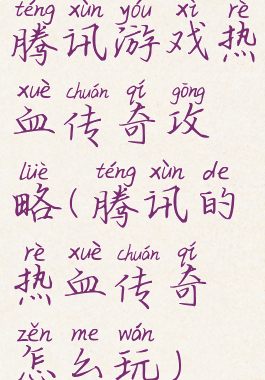 téng xùn yóu xì rè
腾讯游戏热
xuè chuán qí gōng
血传奇攻
lüè téng xùn de
略(腾讯的
rè xuè chuán qí
热血传奇
zěn me wán
怎么玩)